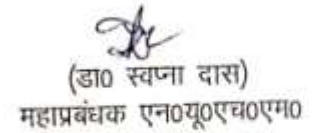 (डा० स्वप्ना दास)
महाप्रबंधक एन०यू०एच०एम०